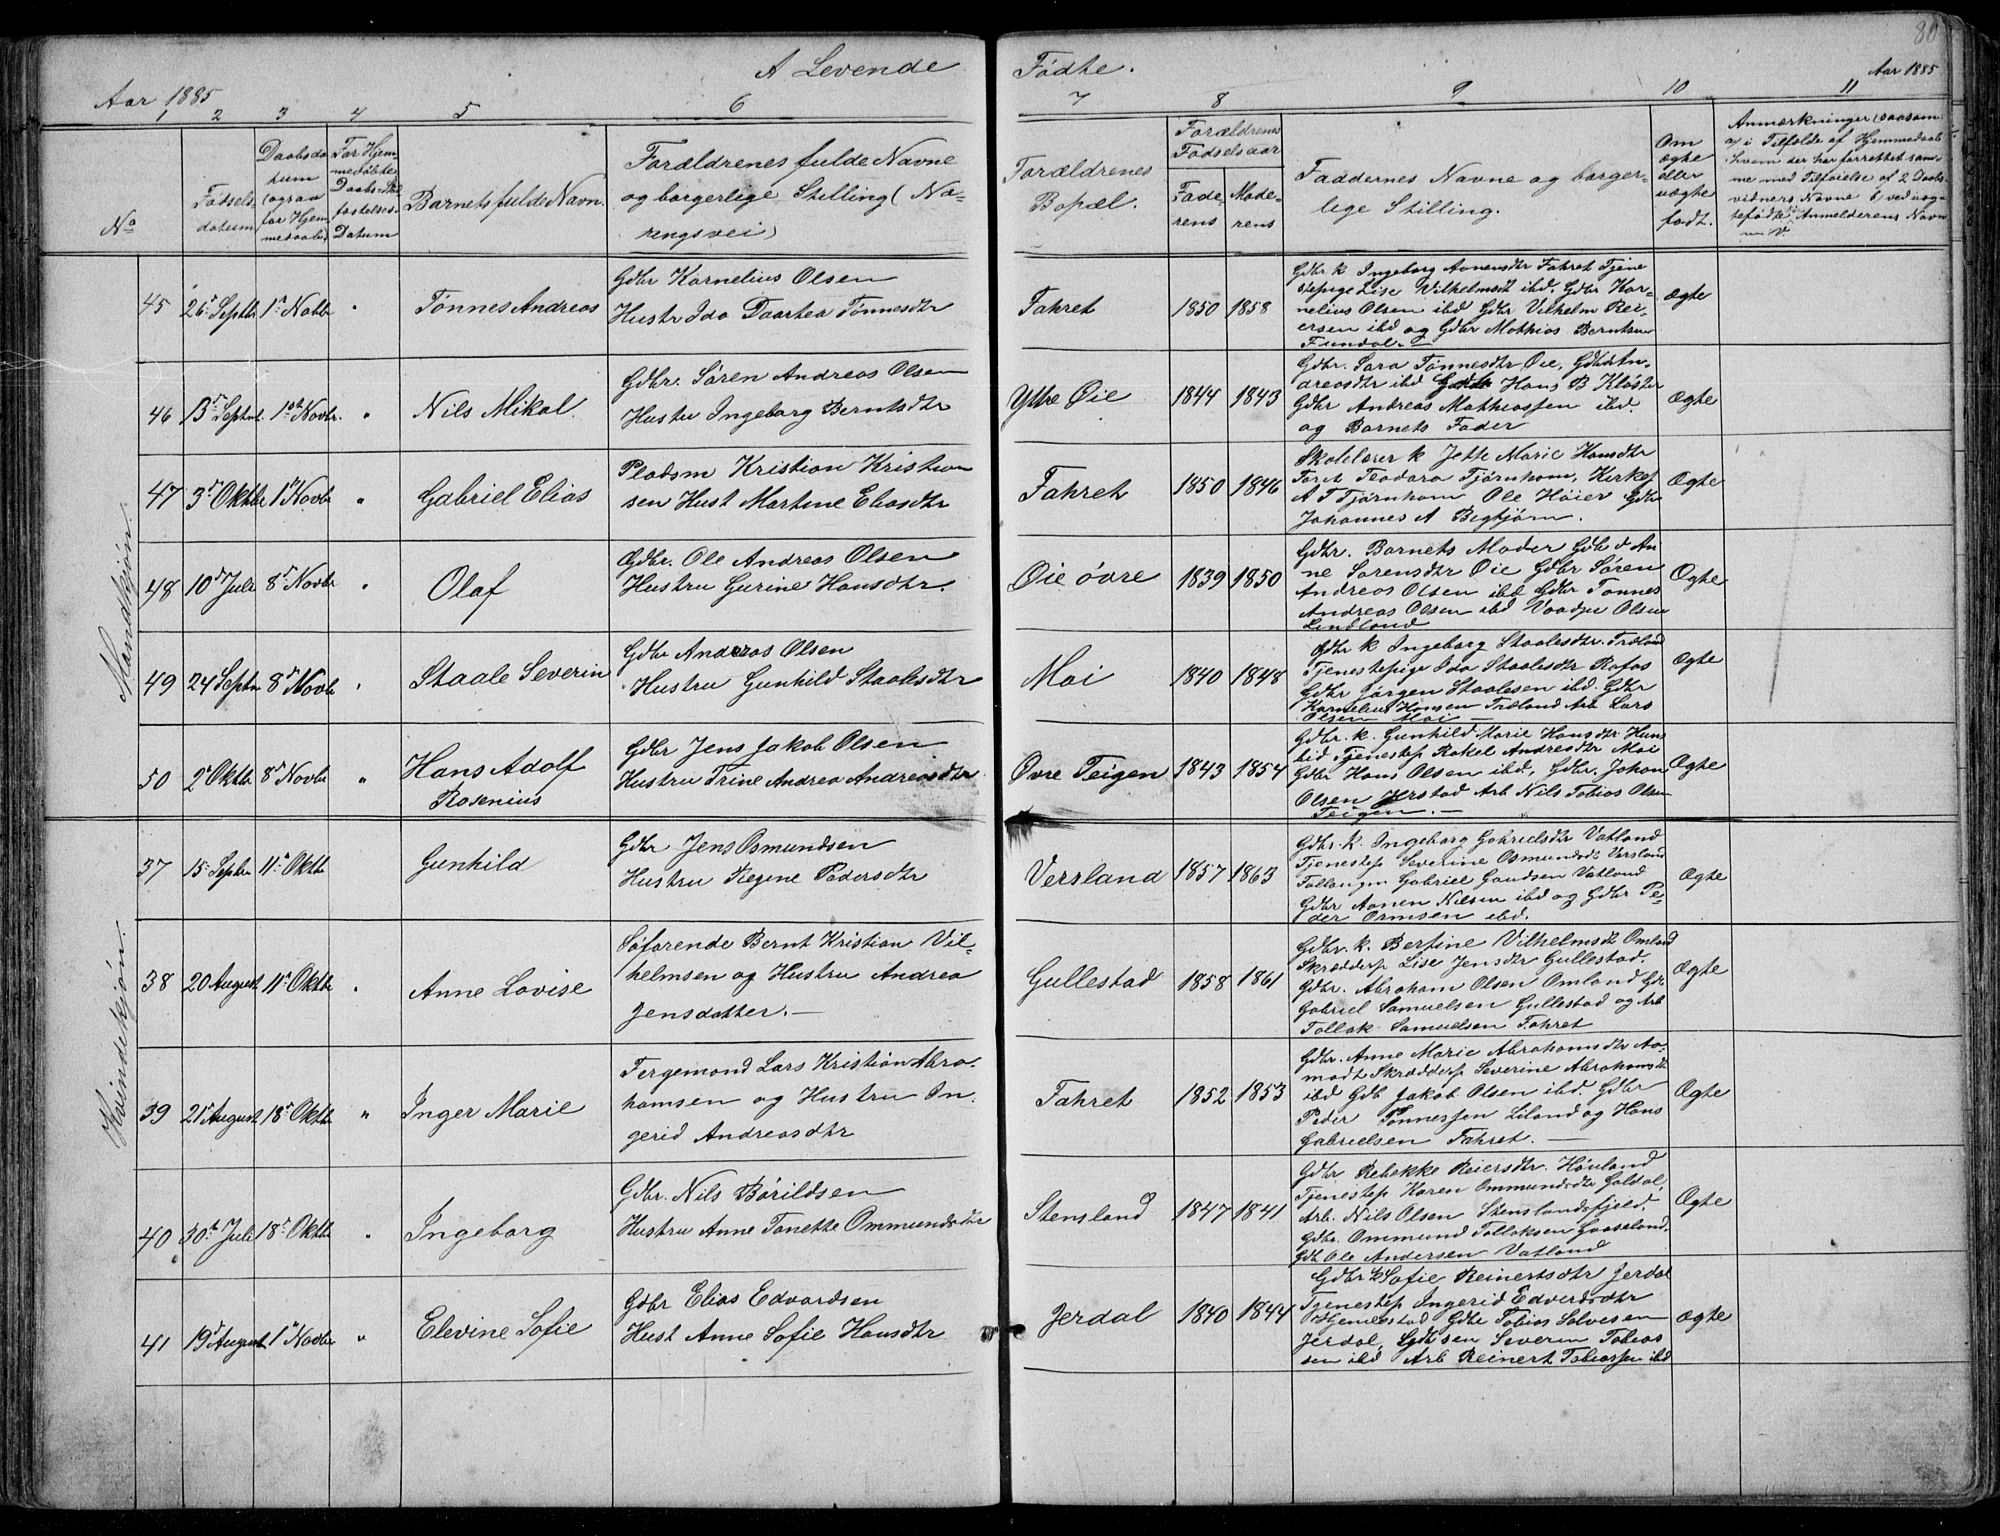 80
A Levende Fødte.
Aar 1885 Aar 1885
1 2 3 4 5 6 7 8 9 10 11
No
Fødsels-
datum
Daabsda
tum
(ograa
for Hjem
medaab)
For Hjem-
medøbte
Daabs-
fæstelses-
Datum
Barnets fulde Navn.
Forældrenes fulde Navne
og borgerlige Stilling (Næ-
ringsvei)
Forældrenes
Bopæl.
Forældrenes
Fødselsaar
Fade-
rens
Mode-
rens
Faddernes Navne og borger-
lige Stilling.
Om
ægte
eller
uægte
født.
Anmærkninger (saasom
a) i Tilfælde af Hjemmedaab
hvem der har forrettet sam-
me med Tilføielse af 2 Daabs-
vidners Navne b) ved uæg-
tefødte, Anmelderens Navn
m. v.
Mandkjøn.
45 26 Septbr 1 Novbr " Tønnes Andreas
Gdbr Kornelius Olsen
Hustr Ida Daartea Tønnesdtr
Fahret 1850 1858
Gdbr k Ingeborg Aanensdtr Fahret Tjene
stepige Lise Wilhelmsdt ibd, Gdbr Kor-
nelius Olsen ibd Gdbr Vilhelm Rei-
ersen ibd og Gdbr Mathias Berntsen
Fundal.
ægte
46 13 Septbr 1st Novbr. " Nils Mikal.
Gdbr. Søren Andreas Olsen
Hustru Ingeborg Berntsdtr
Yttre Øie 1844 1843
Gdbr. Sara Tønnesdtr Øie, Gdbr An-
dreasdtr ibd Hans B Kloster
Gdbr Andreas Mathiassen ibd.
og Barnets Fader
Ægte
47 3 Oktbr 1 Novbr " Gabriel Elias
Pladsm Kristian Kristian
sen Hust Martine Eliasdtr
Fahret 1850 1846
Skolelærer k Jette Marie Hansdtr
Faret Teodora Tjørnhom, Kirkes
A T Tjørnhom Ole Høier Gdbr
Johannes A Begtjørn.
Ægte
48 10 Juli 8 Novbr " Olaf
Gdbr. Ole Andreas Olsen
Hustru Gurine Hansdtr.
Øie øvre 1839 1850
Gdbr. Barnets Moder Gdb d An-
ne Sørensdtr Øie Gdbr Søren
Andreas Olsen ibd Gdbr Tønnes
Andreas Olsen ibd Olsen
Lindland
Ægte
49 24 Septbr 8 Novbr " Staale Severin
Gdbr Andreas Olsen
Hustru Gunhild Staalesdtr
Moi 1840 1848
Gdbr k Ingeborg Staalesdtr. Træland
Tjenestepige Ida Staalesdtr Røfos
Gdbr Jørgen Staalesen ibd. Gdbr
Kornelius Hansen Træland Arb Lars
Olsen Moi —
Ægte
50 2 Oktbr 8 Novbr " Hans Adolf
Rosenius
Gdbr Jens Jakob Olsen
Hustru Trine Andrea Andreasdtr
Øvre Teigen 1843 1854
Gdbr. k. Gunhild Marie Hansdtr Huns
bid Tjenestep Rakel Andreasdtr Moi
Gdbr Hans Olsen ibd, Gdbr. Johan
Olsen Arb Nils Tobias Olsen
Teigen. —
Ægte
Kvindekjøn.
37 15 Septbr 11 Oktbr Gunhild
Gdbr Jens Osmundsen
Hustru Regine Pedersdtr
Versland 1857 1863
Gdbr. k. Ingeborg Gabrielsdtr Vatland
Tjenestep Severine Osmundsdt Versland
Gabriel Gaudsen Vatland
Gdbr Aanen Nilsen ibd og Gdbr Pe-
der Ormsen ibd.
Ægte
38 20 August 11 Oktbr " Anne Lovise
Søfarende Bernt Kristian Vil-
helmsen og Hustru Andrea
Jensdatter. —
Gullestad 1858 1861
Gdbr. k. Bertine Vilhelmsdt Omland
Skrædderp Lise Jensdtr Gullestad.
Gdbr. Abraham Olsen Omland Gdr
Gabriel Samuelsen Gullestad og Arb
Tollak Samuelsen Fahret
Ægte
39 21 August 18 Oktbr " Inger Marie
Fergemand Lars Kristian Abra-
hamsen og Hustru In-
gerid Andreasdtr
Fahret 1852 1853
Gdbr. Anne Marie Abrahamsdtr Aa-
modt Skrædderp Severine Abrahamsdt
ibd Gdb Jakob Olsen ibd. Gdbr
Peder Tønnessen Liland og Hans
Gabrielsen Fahret. —
Ægte
40 30 Juli 18 Oktbr " Ingeborg
Gdbr. Nils Børildsen
Hustru Anne Tonette Ommundsdtr
Stensland 1847 1841
Gdbr Rebekke Reiersdtr. Houland
Tjenestep Karen Ommundsdtr
Arb. Nils Olsen Stenslandsfjeld.
Gdbr. Ommund Tollaksen Gaaseland.
Gdb Ole Andersen Vatland
Ægte
41 19 August 1 Novbr " Elevine Sofie
Gdbr Elias Edvardsen
Hust Anne Sofie Hansdtr
Jerdal 1840 1844
Gdbr k Sofie Reinertsdtr Jerdal
Tjenestep Ingerid Edvardsdtr
Gdbr Tobias Salvesen
Jerdal, Severin Tobias
sen ibd Arb Reinert Tobiassen ibd
ægte